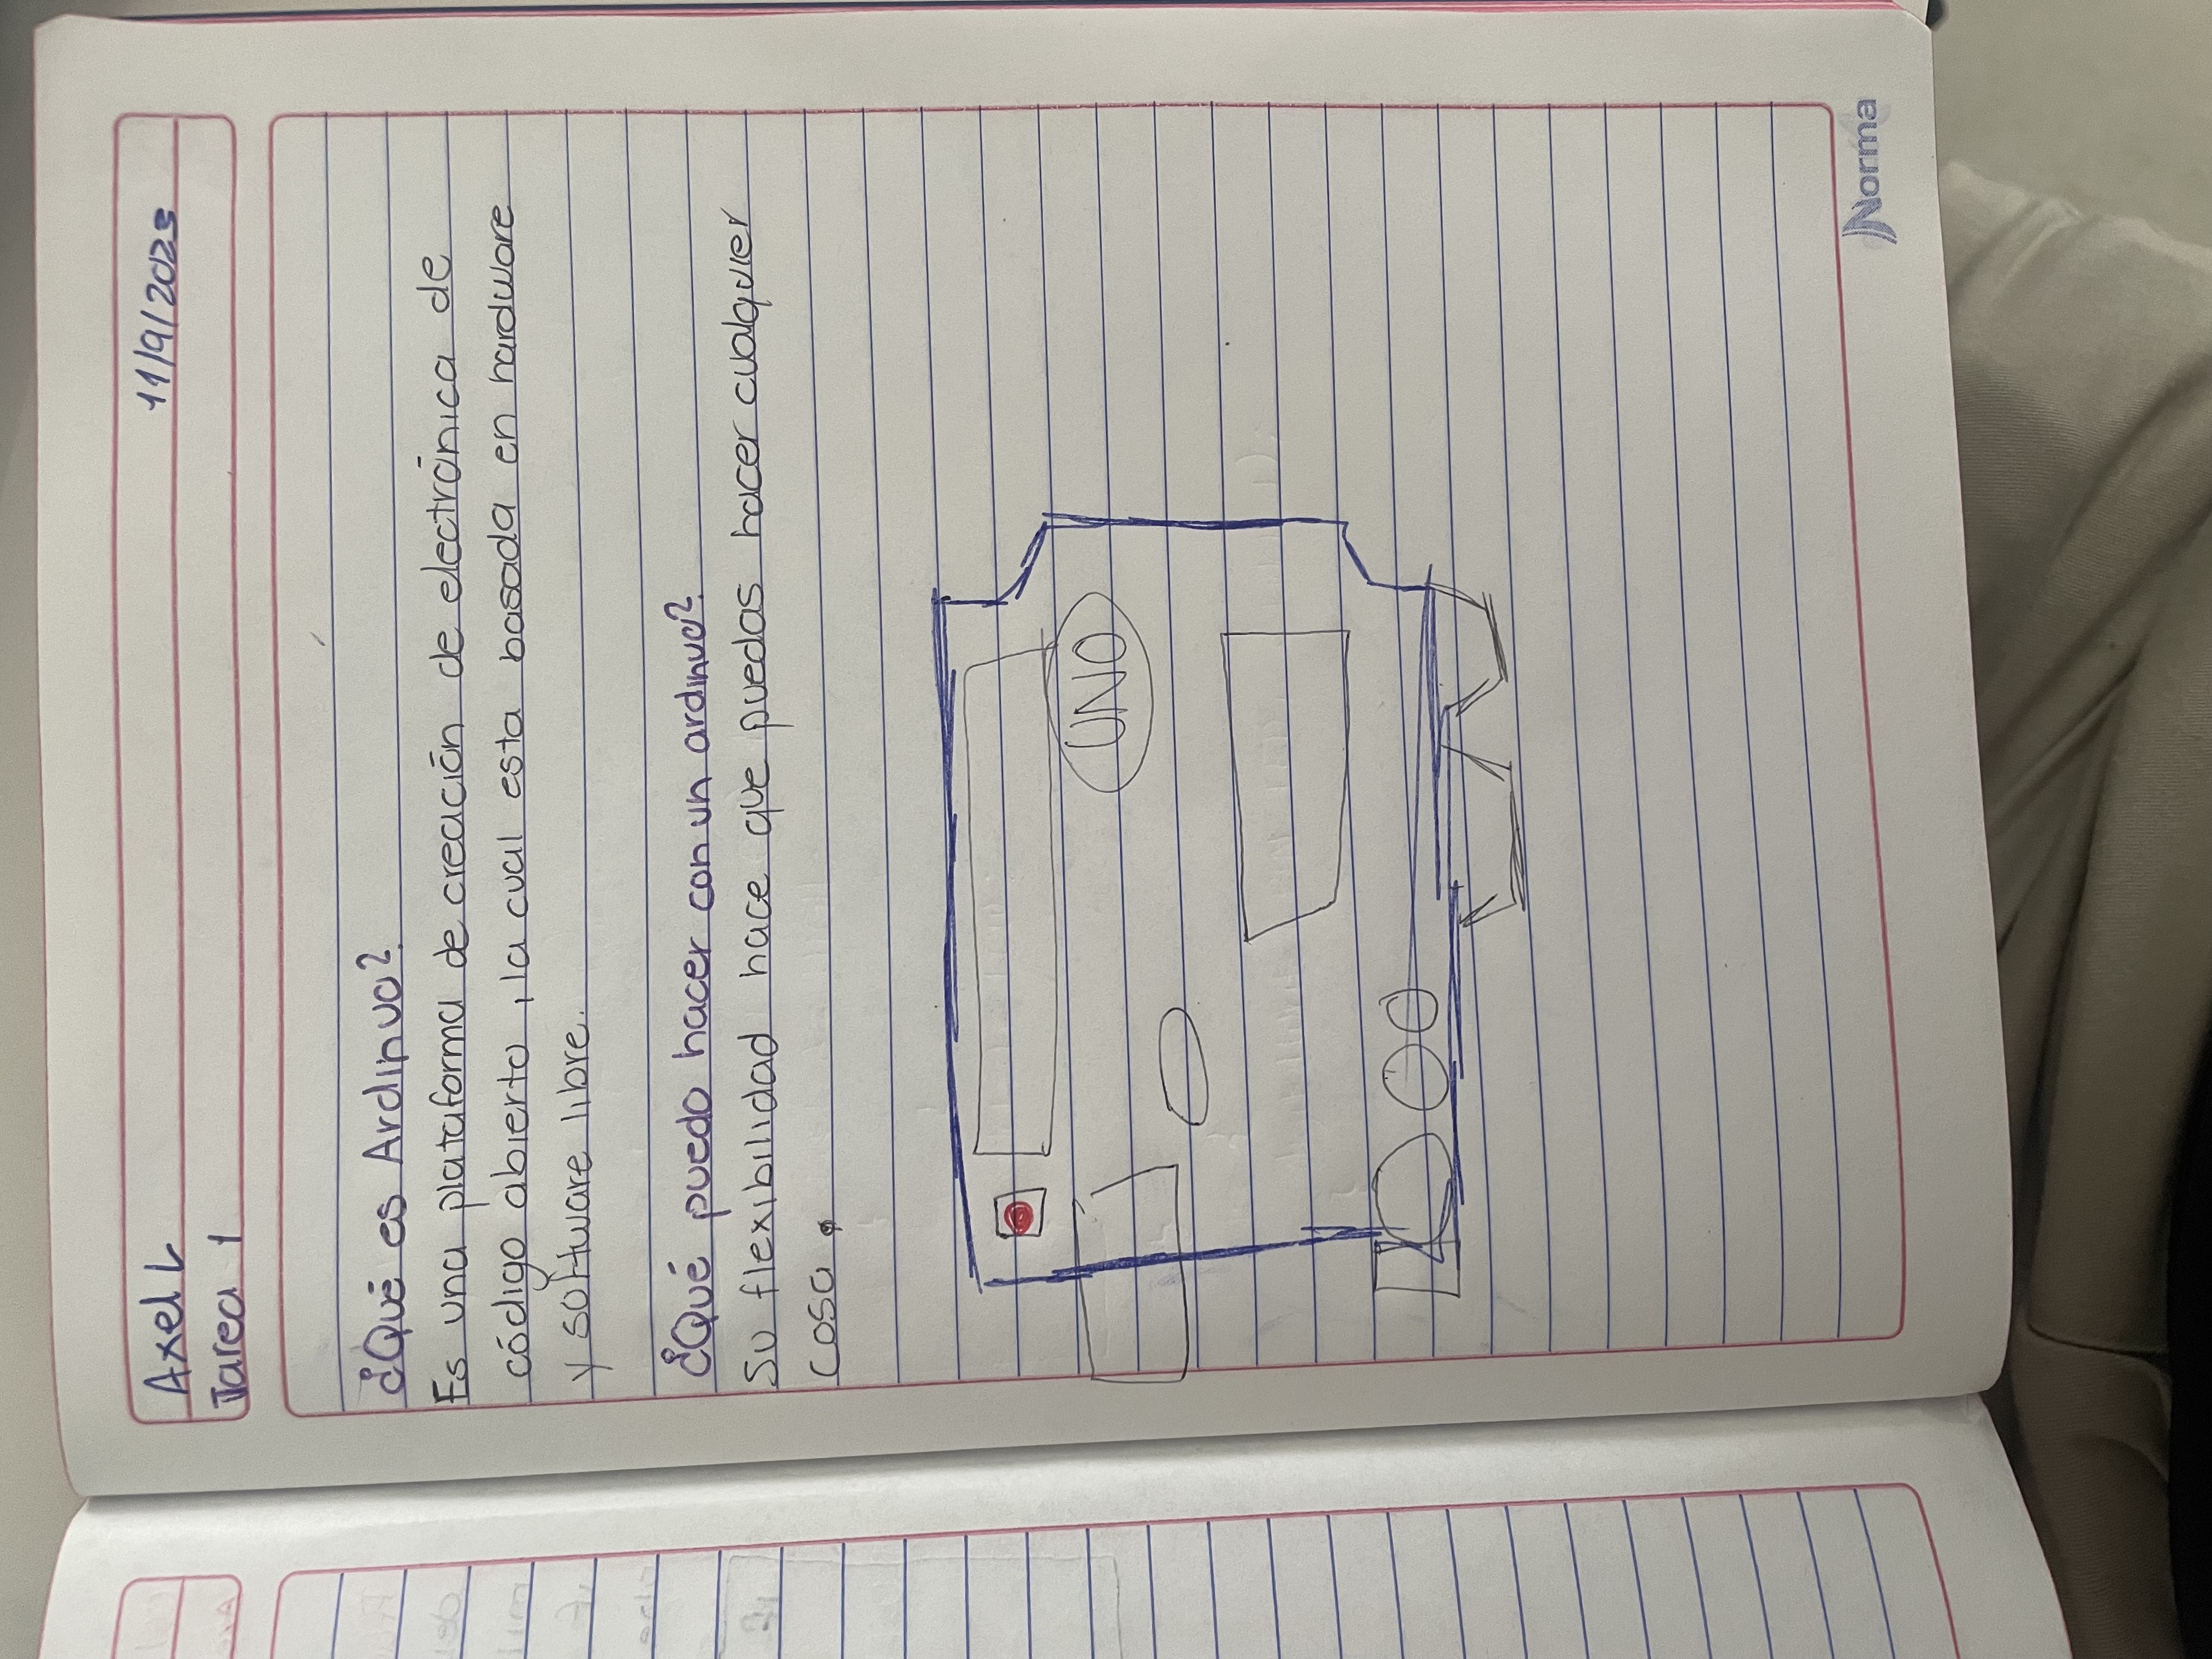 Axel L
11/9/2025
Tarea 1
¿Qué es Ardinuo?
Es una plataforma de creación de electrónica de
código abierto, la cual esta basada en hardware
y software libre.
¿Qué puedo hacer con un ardinuo?
Su flexibilidad hace que puedas hacer cualquier
cosa.
UNO
Norma